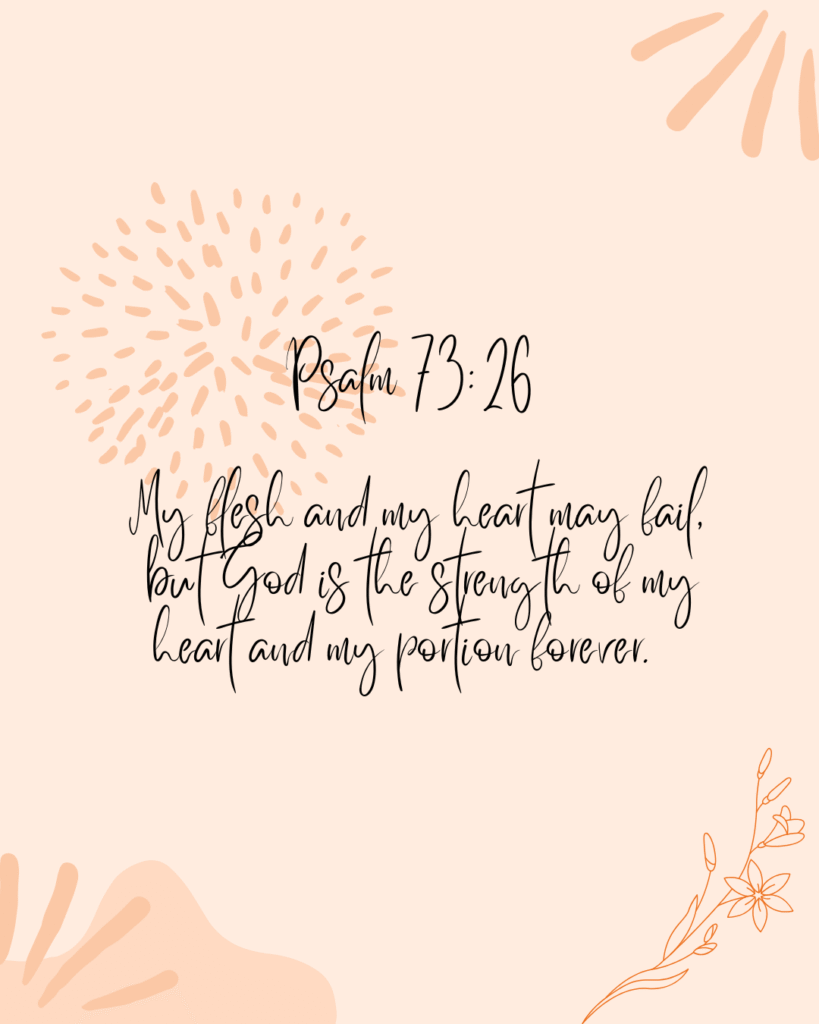 Psalm 73:26
My flesh and my heart may fail,
but God is the strength of my
heart and my portion forever.